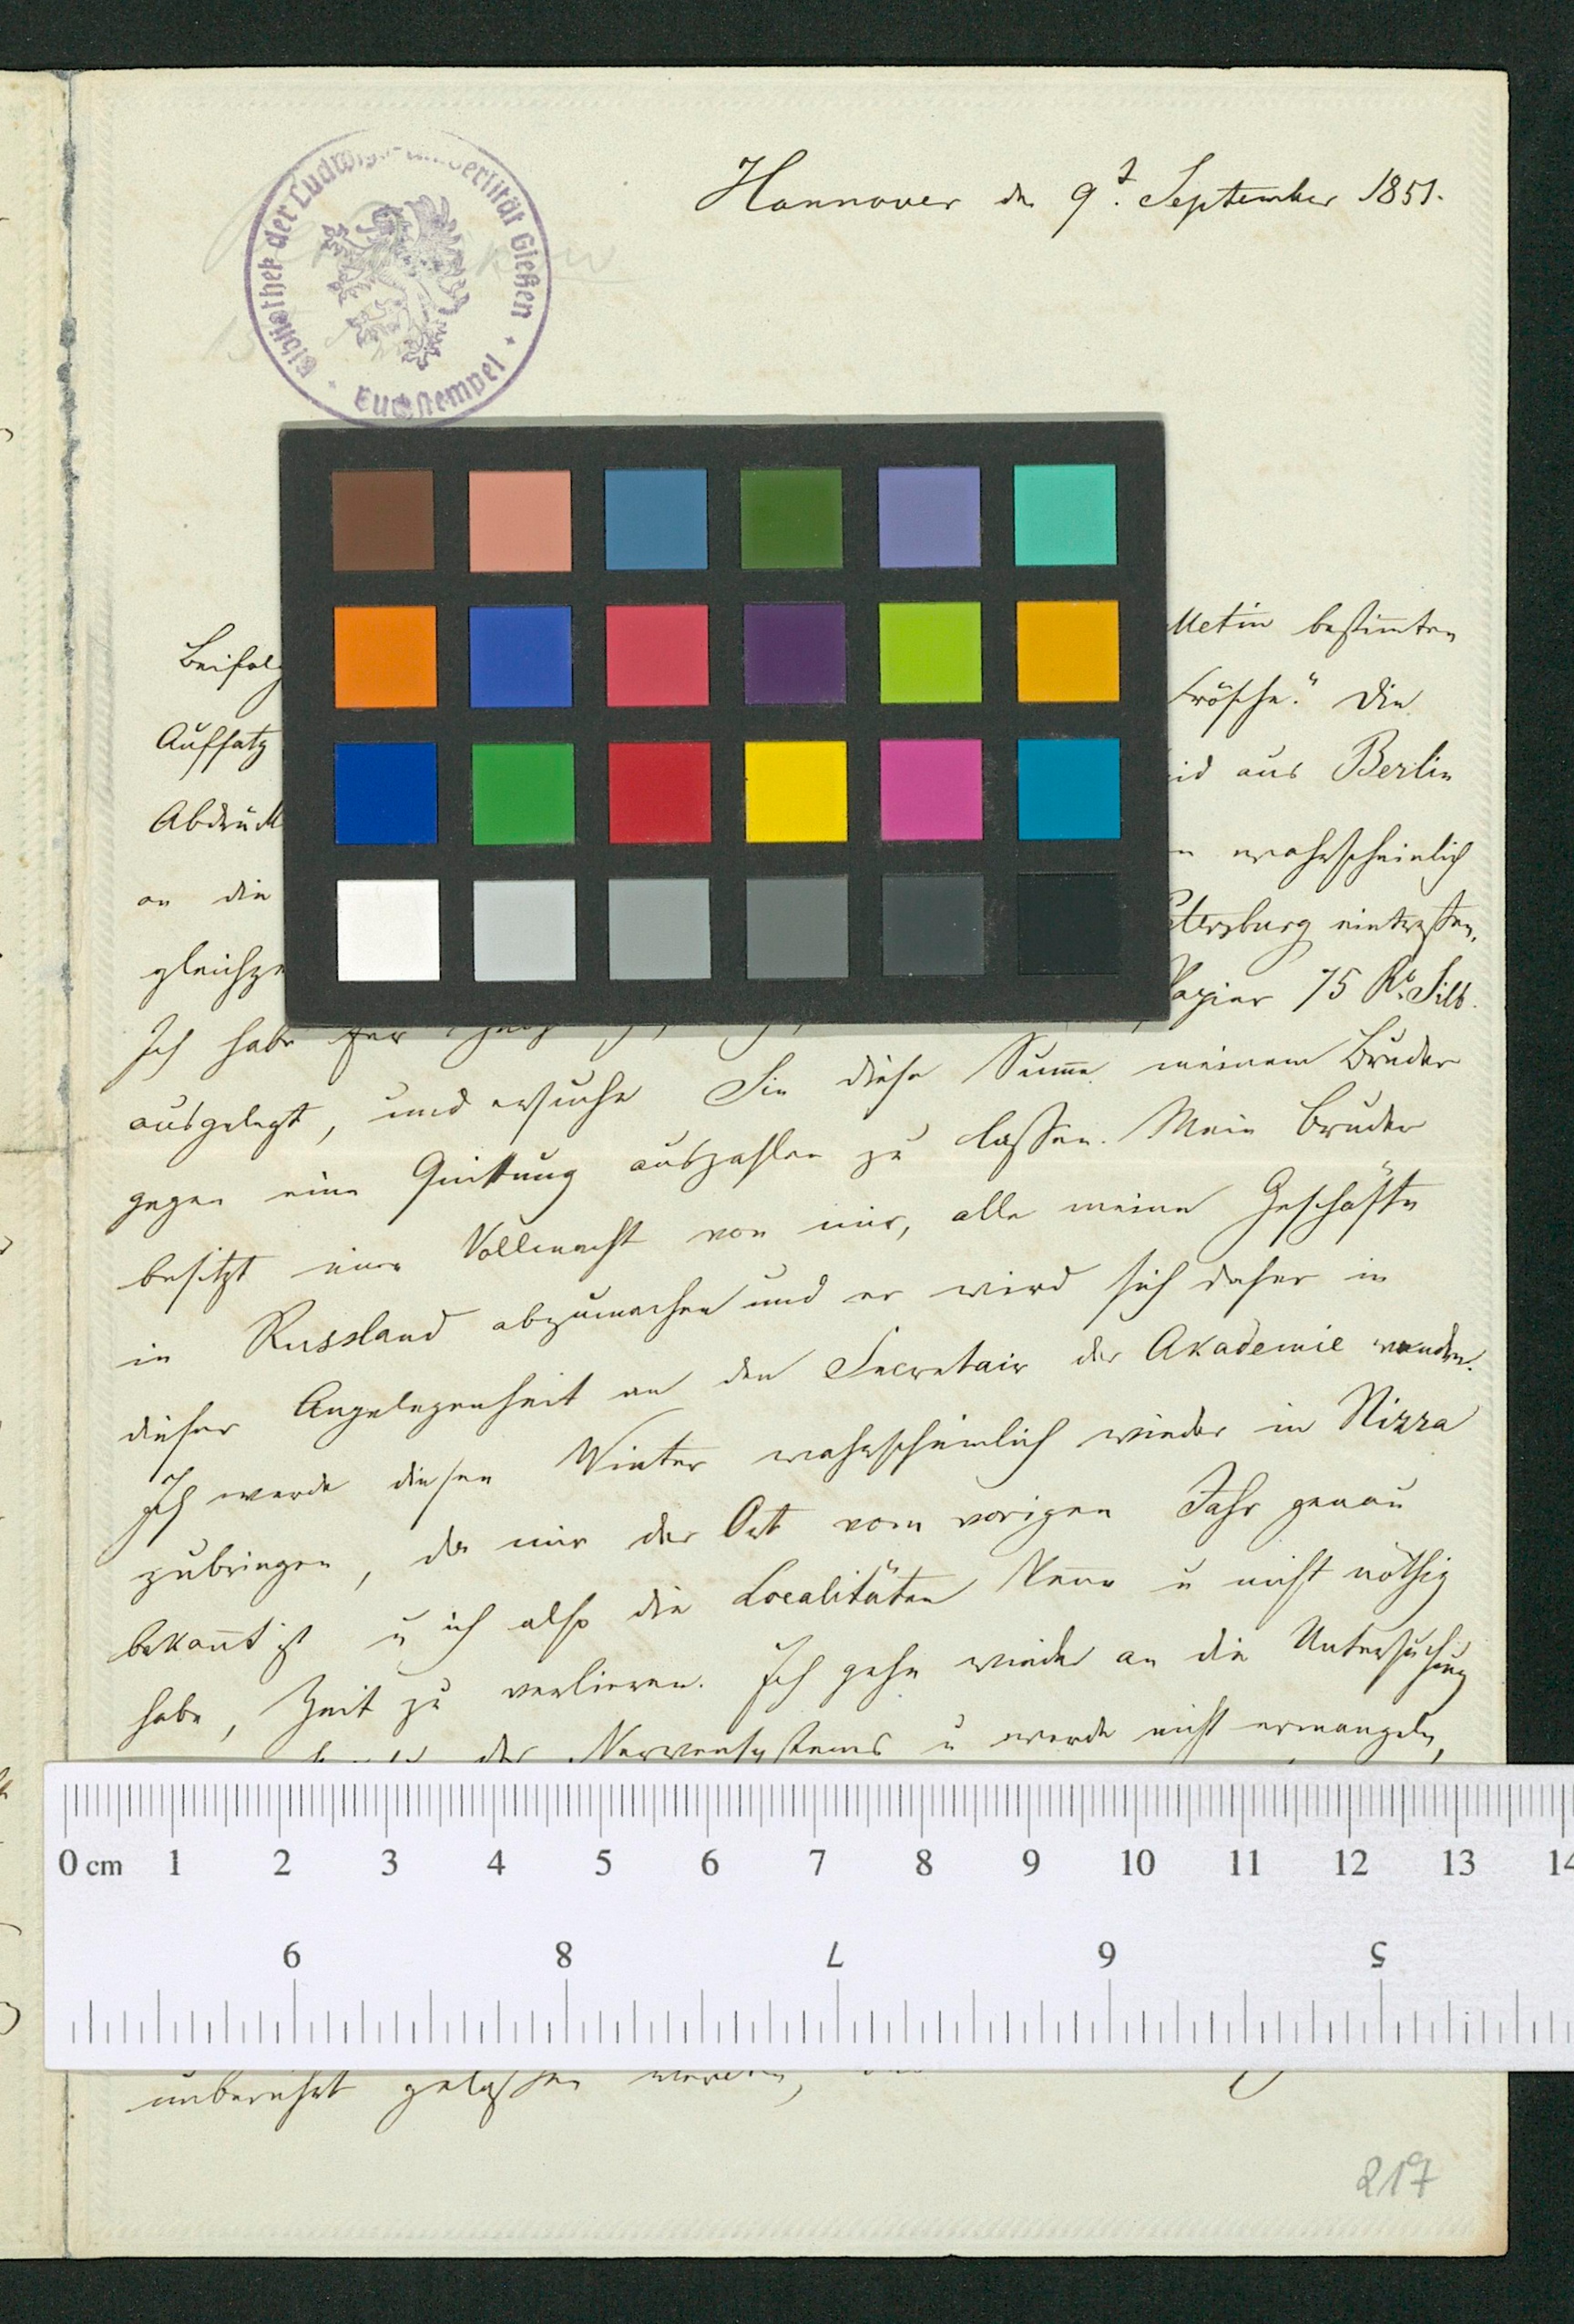 Bibliothek der Ludwigs-Universität Gießen
Hannover d. 9t. September 1851.
Beifolg lletin bestimten
Aufsatz Frösche." Die
Abdrück id aus Berlin
an die wahrscheinlich
gleichze etersburg eintreffen.
Ich habe Papier 75 Rb. Silb.
ausgelegt, und ersuche Sie diese Summe meinem Bruder
gegen eine Quittung auszahlen zu lassen. Mein Bruder
besitzt eine Vollmacht von mir, alle meine Geschäfte
in Russland abzumachen und er wird sich daher in
dieser Angelegenheit an den Secretair der Akademie wenden.
Ich werde diesen Winter wahrscheinlich wieder in Nizza
zubringen, da mir der Ort vom vorigen Jahr genau
bekannt ist u ich also die Localitäten kenne u nicht nöthig
habe, Zeit zu verlieren. Ich gehe wieder an die Untersuchung
des Nervensystems u werde nicht ermangeln,
0 cm 1 2 3 4 5 6 7 8 9 10 11 12 13 14
9 8 7 6 5
unberührt gelassen werden,
217